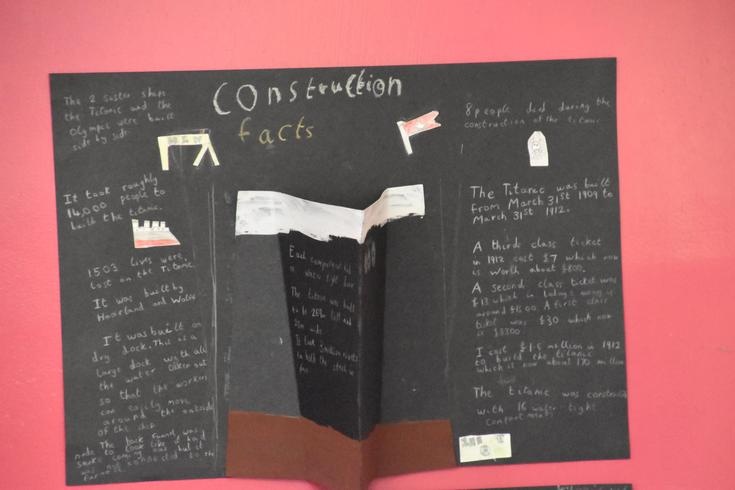 Construction
facts
The 2 sister ships
the Titanic and the
Olympic were built
side by side.
It took roughly
14,000 people to
built the titanic.
1503 lives were
lost on the Titanic.
It was built by
Haarland and Wolve
It was built on
dry dock. This is a
large dock with all
the water taken out
so that the workers
can easily move
around the outside
of the ship
The back funnel was
made to look like it had
smoke coming out but it
was not connected to the
Each compartment had
a water tight door
The titanic was built
to be
wide.
It took 3 million rivets
to hold the
8 people died during the
construction of the titanic.
The Titanic was built
from March 31st 1909 to
March 31st 1912.
A third class ticket
in 1912 cost £7 which now
is worth about £800.
A second class ticket was
£13 which in todays money is
around £1500. A first class
ticket was £30 which now
is £3300.
I cost £1.5 million in 1912
to build the titanic
which is now about 170 million
The titanic was constructed
with 16 water tight
compartments